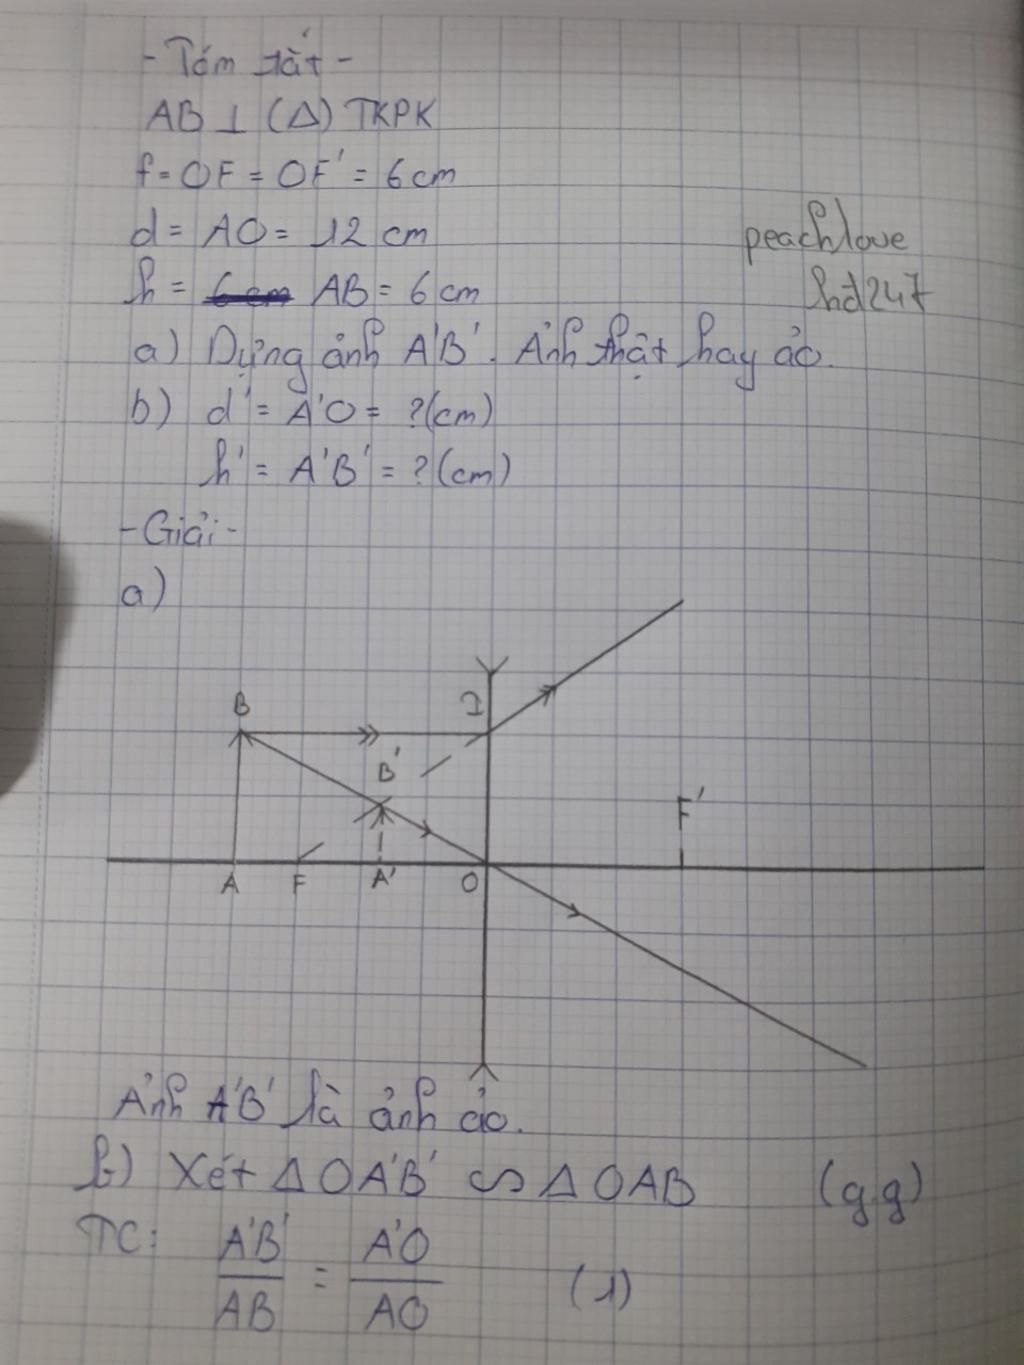 - Tóm tắt -
AB ⊥ (Δ) TKPK
f = OF = OF' = 6 cm
d = AO = 12 cm
peachlove
h = AB = 6 cm
hđ247
a) Dựng ảnh A'B'. Ảnh thật hay ảo.
b) d' = A'O = ?(cm)
h' = A'B' = ?(cm)
- Giải -
a)
B I
B'
F'
A F A' O
Ảnh A'B' là ảnh ảo.
b) Xét Δ OA'B' ∽ Δ OAB (g.g)
TC: A'B'/AB = A'O/AO (1)